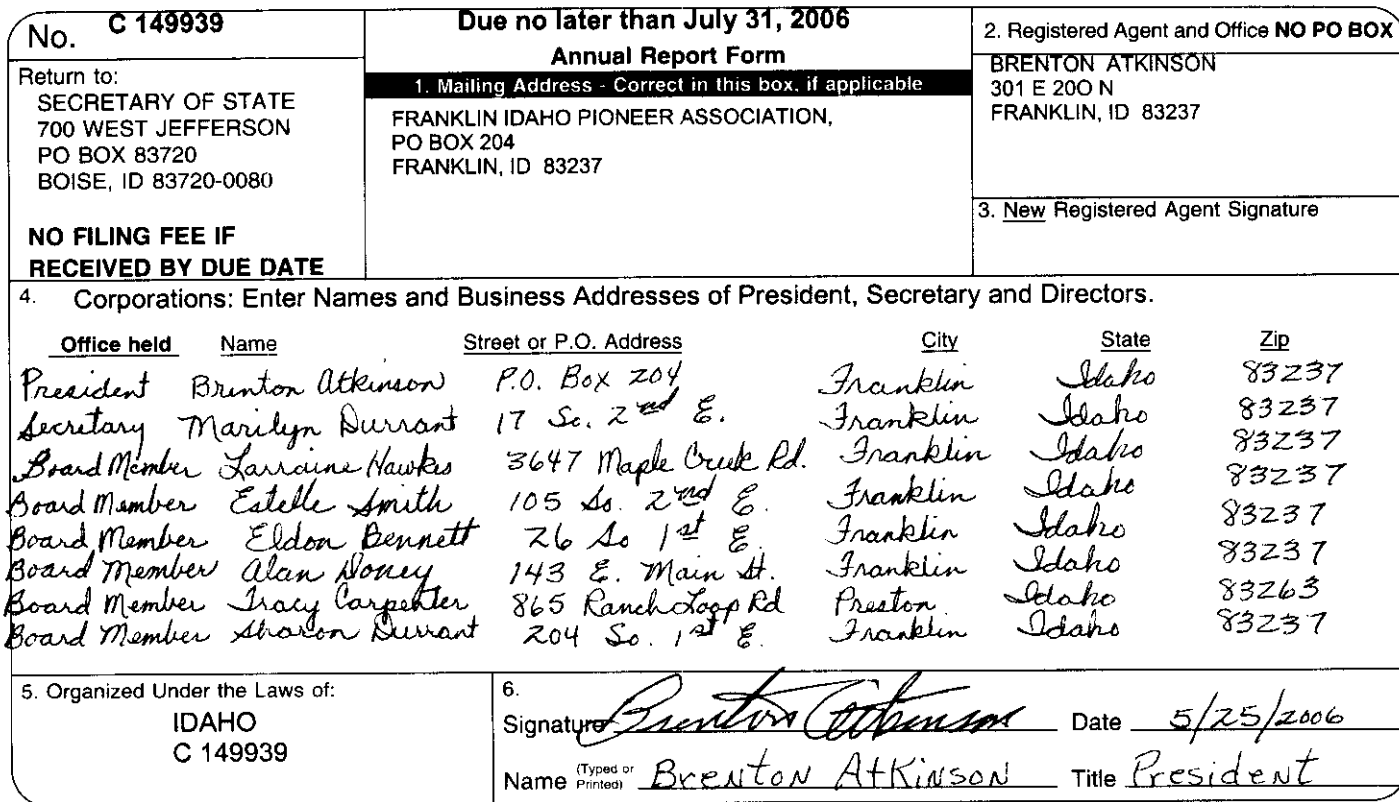 No. C 149939
Return to:
SECRETARY OF STATE
700 WEST JEFFERSON
PO BOX 83720
BOISE, ID 83720-0080
NO FILING FEE IF
RECEIVED BY DUE DATE
Due no later than July 31, 2006
Annual Report Form
1. Mailing Address - Correct in this box, if applicable
FRANKLIN IDAHO PIONEER ASSOCIATION,
PO BOX 204
FRANKLIN, ID 83237
2. Registered Agent and Office NO PO BOX
BRENTON ATKINSON
301 E 200 N
FRANKLIN, ID 83237
3. New Registered Agent Signature
4. Corporations: Enter Names and Business Addresses of President, Secretary and Directors.
Office held Name Street or P.O. Address City State Zip
President Brenton Atkinson P.O. Box 204 Franklin Idaho 83237
Secretary Marilyn Durrant 17 So. 2nd E. Franklin Idaho 83237
Board Member Larraine Hawkes 3647 Maple Creek Rd. Franklin Idaho 83237
Board Member Estelle Smith 105 So. 2nd E. Franklin Idaho 83237
Board Member Eldon Bennett 26 So 1st E. Franklin Idaho 83237
Board Member Alan Doney 143 E. Main St. Franklin Idaho 83237
Board Member Tracy Carpenter 865 Ranch Loop Rd Preston Idaho 83263
Board Member Sharon Durrant 204 So. 1st E. Franklin Idaho 83237
5. Organized Under the Laws of:
IDAHO
C 149939
6.
Signature Brenton Atkinson Date 5/25/2006
Name (Typed or Printed) Brenton Atkinson Title President